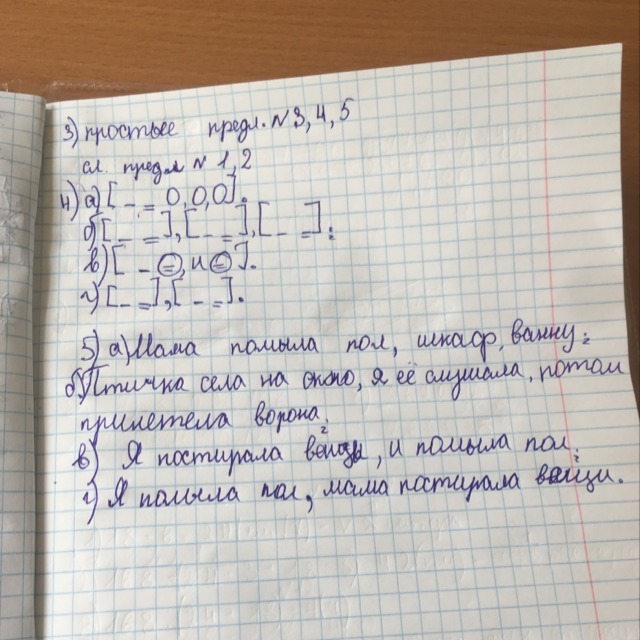 3) простые предл. №3, 4, 5
сл. предл №1, 2
4) а) [_ = O, O, O].
б) [_ =], [_ =], [_ =].
в) [_ ⊜, и ⊜].
г) [_ =], [_ =].
5) а) Мама помыла пол, шкаф, ванну.
б) Птичка села на окно, я её слушала, потом
прилетела ворона.
в) Я постирала вещи, и помыла пол.
г) Я помыла пол, мама постирала вещи.